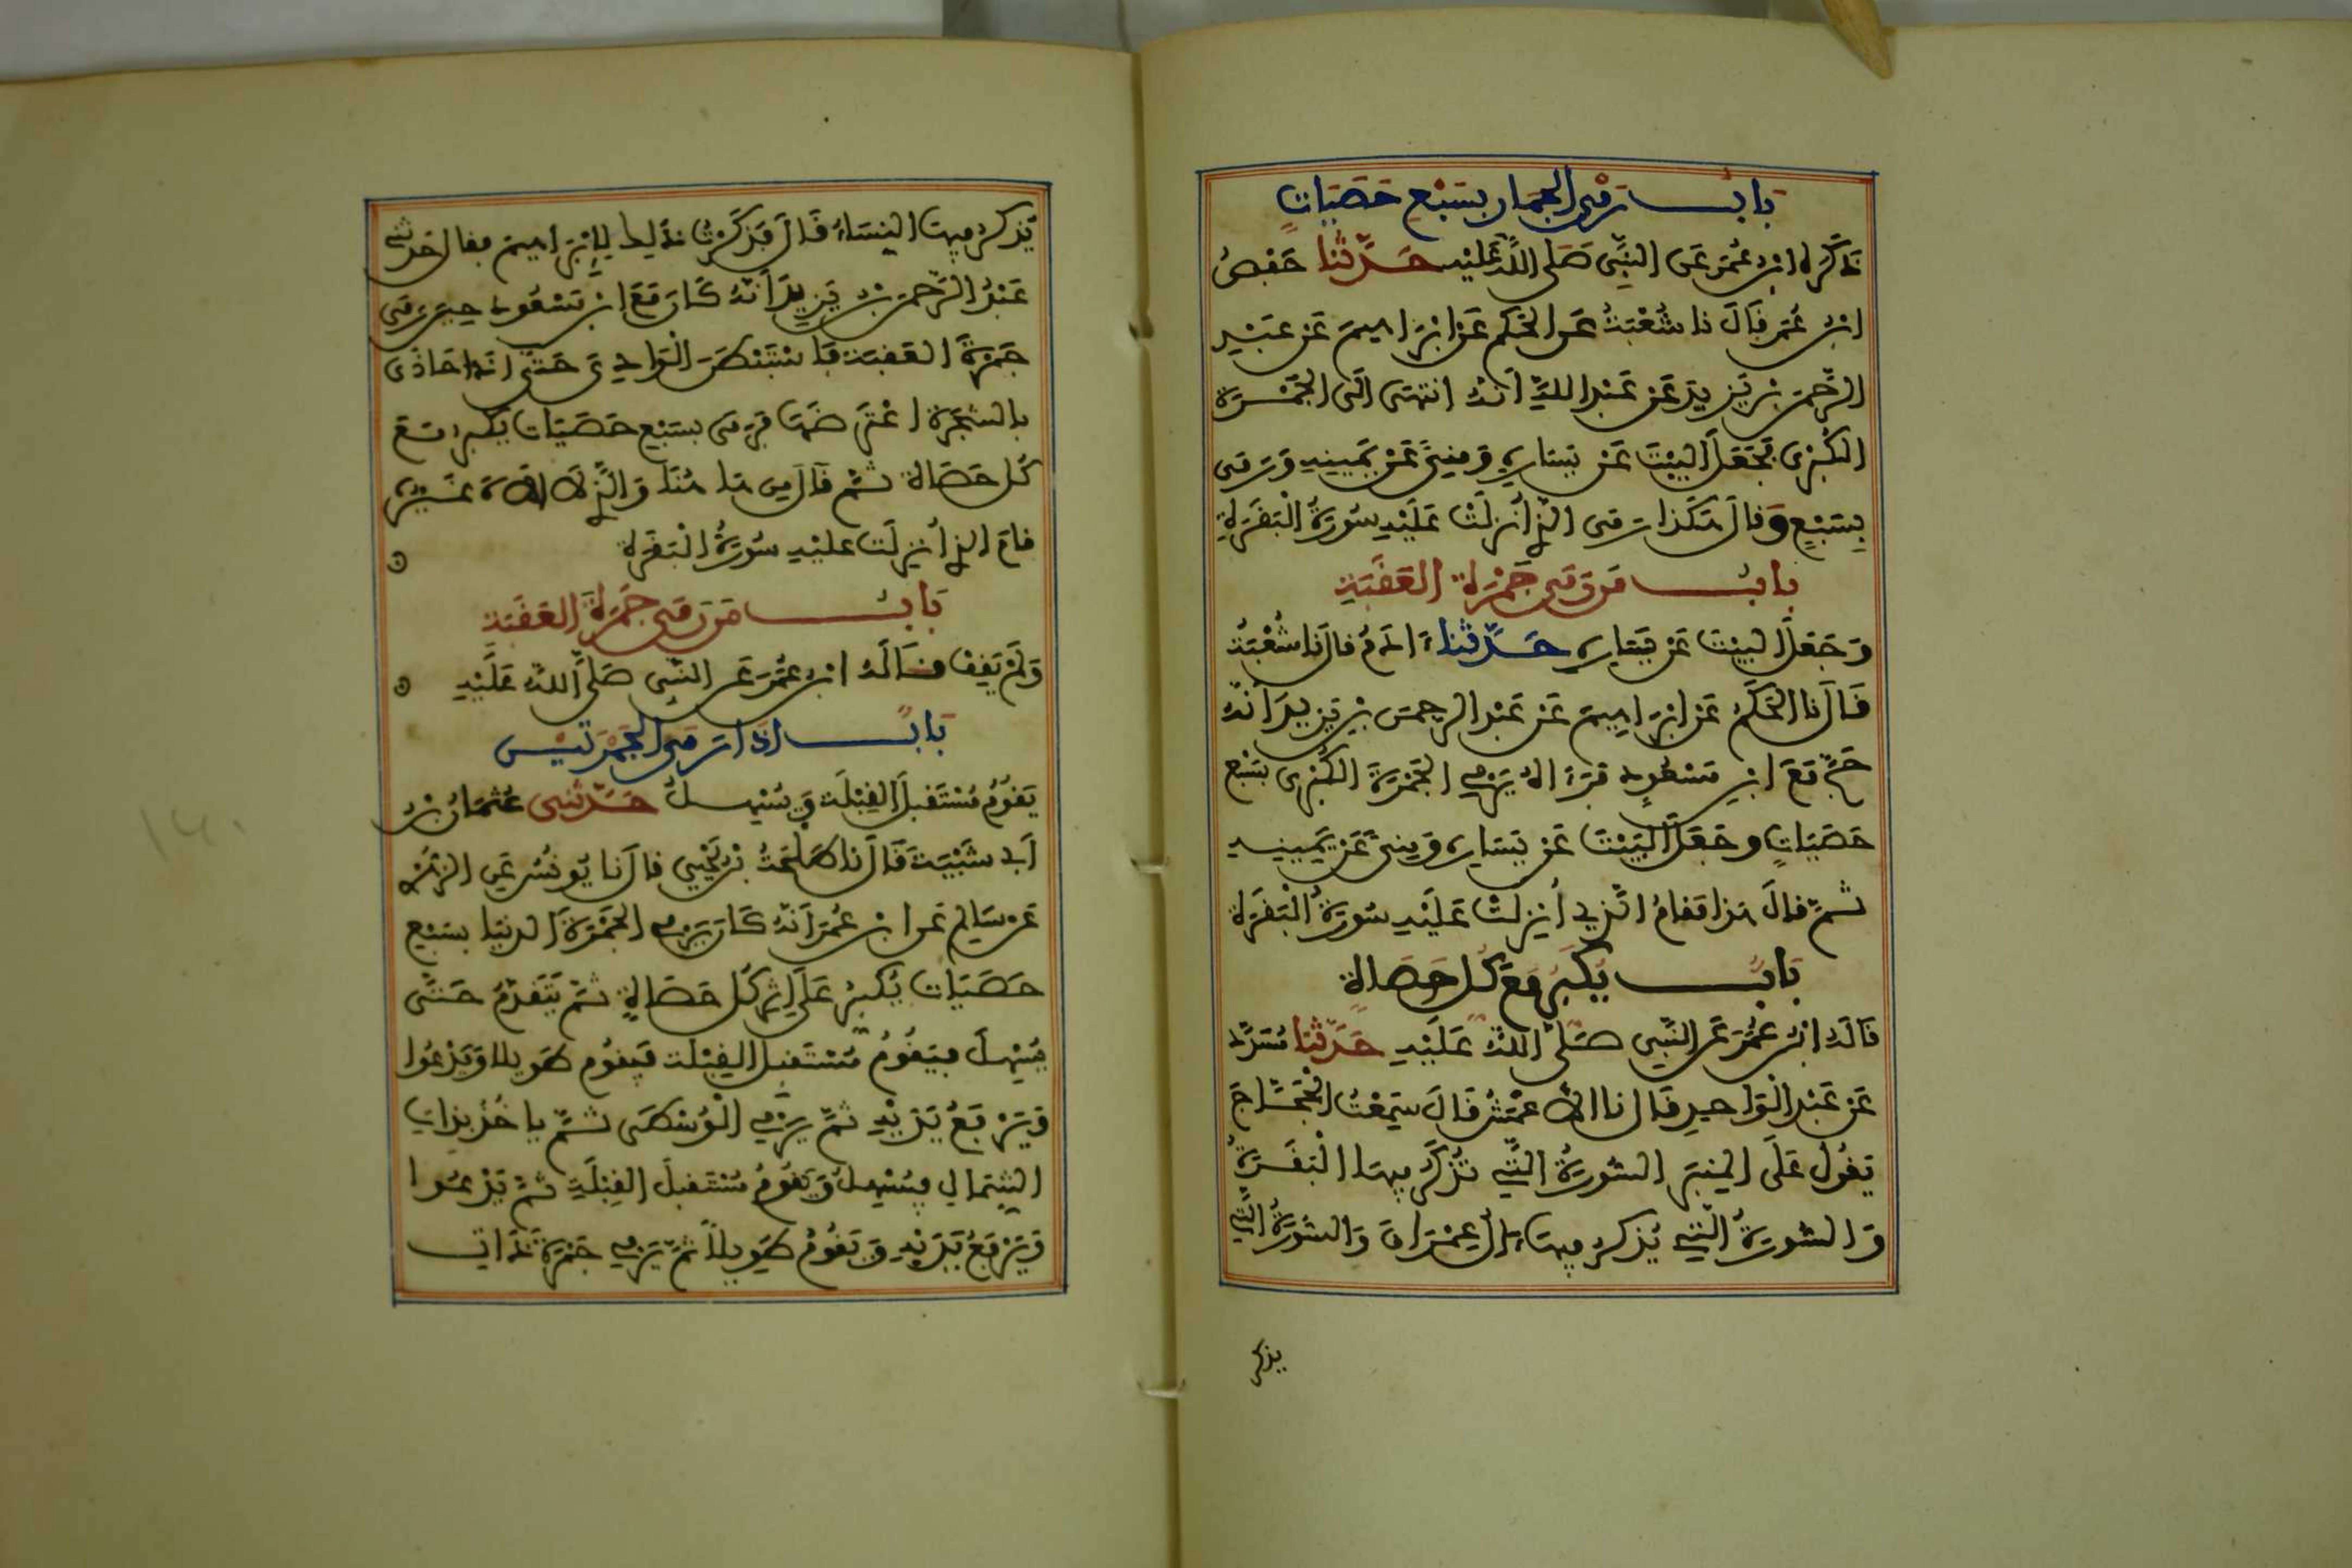 باب رمي الجمار بسبع حصيات
ذكره ابن عمر عن النبي صلى الله عليه حدثنا حفص
ابن عمر قال نا شعبة عن الحكم عن ابراهيم عن عبد
الرحمن بن يزيد عن عبد الله أنه انتهى الى الجمرة
الكبرى فجعل البيت عن يساره ومنى عن يمينه ورمى
بسبع وقال هكذا رمى الذي أنزلت عليه سورة البقرة
باب من رمى جمرة العقبة
وجعل البيت عن يساره حدثنا ءادم قال نا شعبة
قال نا الحكم عن ابراهيم عن عبد الرحمن بن يزيد أنه
حج مع ابن مسعود فرءاه يرمي الجمرة الكبرى بسبع
حصيات وجعل البيت عن يساره ومنى عن يمينه
ثم قال هذا مقام الذي أنزلت عليه سورة البقرة
باب يكبر مع كل حصاة
قاله ابن عمر عن النبي صلى الله عليه حدثنا مسدد
عن عبد الواحد قال نا الأعمش قال سمعت الحجاج
يقول على المنبر السورة التي تذكر فيها البقرة
والسورة التي يذكر فيها ءال عمران والسورة التي
يذكر
يذكر فيها النساء قال فذكرت ذلك لإبراهيم فقال حدثني
عبد الرحمن بن يزيد أنه كان مع ابن مسعود حين رمى
جمرة العقبة فاستبطن الوادي حتى اذا حاذى
بالشجرة اعترضها فرمى بسبع حصيات يكبر مع
كل حصاة ثم قال من هاهنا والذي لا إله غيره
قام الذي أنزلت عليه سورة البقرة
باب من رمى جمرة العقبة
ولم يقف قاله ابن عمر عن النبي صلى الله عليه
باب اذا رمى الجمرتين
يقوم مستقبل القبلة ويسهل حدثني عثمان بن
أبي شيبة قال نا طلحة بن يحيى قال نا يونس عن الزهري
عن سالم عن ابن عمر أنه كان يرمي الجمرة الدنيا بسبع
حصيات يكبر على إثر كل حصاة ثم يتقدم حتى
يسهل فيقوم مستقبل القبلة فيقوم طويلا ويدعوا
ويرفع يديه ثم يرمي الوسطى ثم ياخذ بذات
الشمال فيسهل ويقوم مستقبل القبلة ثم يدعوا
ويرفع يديه ويقوم طويلا ثم يرمي جمرة ذات
١٤٠